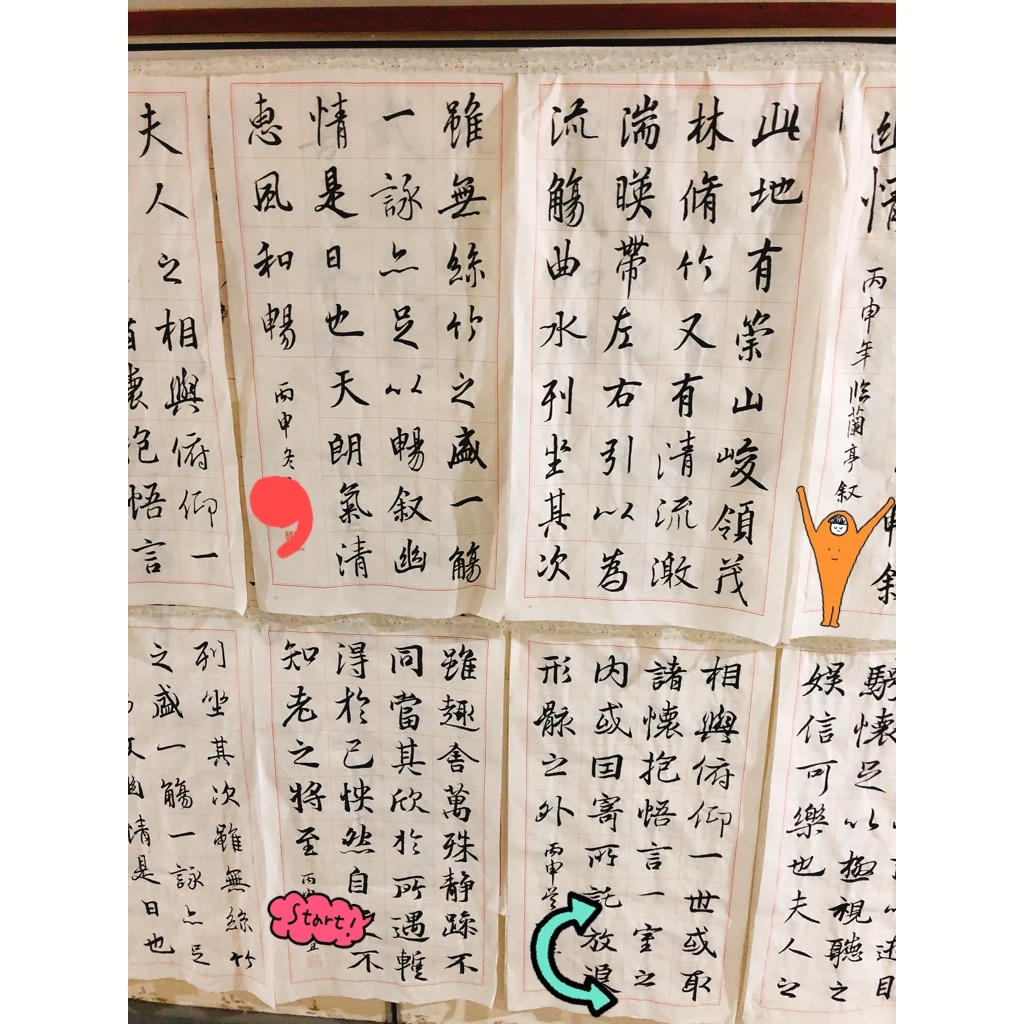 幽情
丙申年临蘭亭叙
此地有崇山峻領茂
林脩竹又有清流激
湍暎帶左右引以為
流觴曲水列坐其次
雖無絲竹之盛一觴
一詠亦足以暢叙幽
情是日也天朗氣清
惠風和暢
丙申冬
夫人之相與俯仰一
懷抱悟言
騁懷足以極視聽之
娛信可樂也夫人之
相與俯仰一世或取
諸懷抱悟言一室之
內或因寄所託放浪
形骸之外
丙申
雖趣舍萬殊静躁不
同當其欣於所遇暫
得於己怏然自不
知老之將至
列坐其次雖無絲竹
之盛一觴一詠亦足
情是日也
Start!